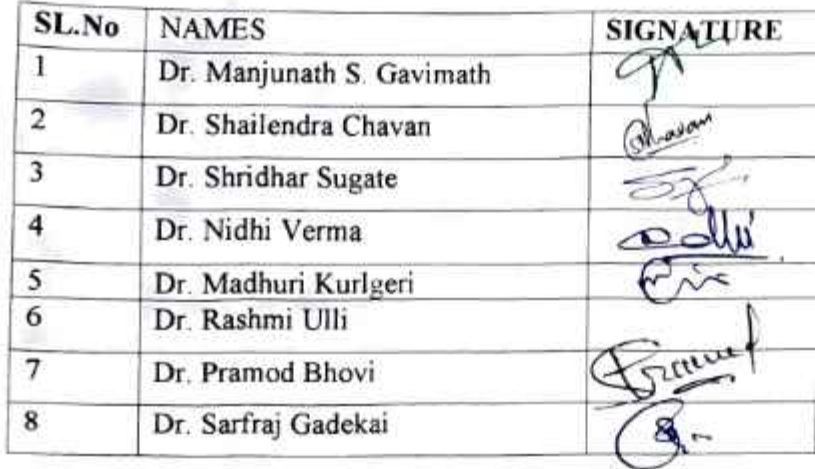 SL.No NAMES SIGNATURE
1 Dr. Manjunath S. Gavimath
2 Dr. Shailendra Chavan Chavan
3 Dr. Shridhar Sugate
4 Dr. Nidhi Verma
5 Dr. Madhuri Kurlgeri
6 Dr. Rashmi Ulli
7 Dr. Pramod Bhovi
8 Dr. Sarfraj Gadekai